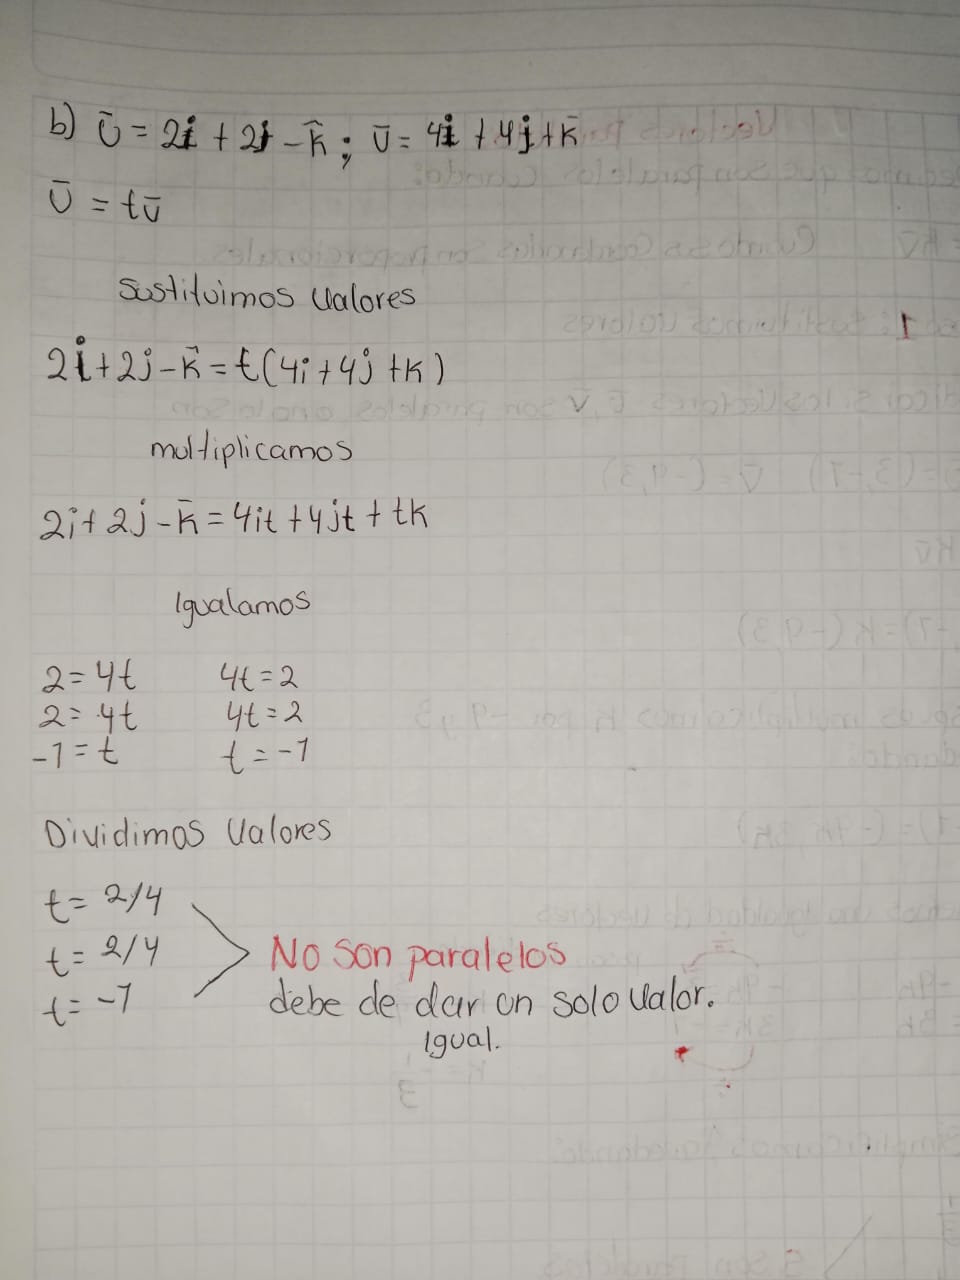 b) Ū = 2i + 2j - k̄ ; Ū = 4i + 4j + k̄
Ū = tū
Sustituimos Valores
2i + 2j - k̄ = t(4i + 4j + k)
multiplicamos
2i + 2j - k̄ = 4it + 4jt + tk
Igualamos
2 = 4t 4t = 2
2 = 4t 4t = 2
-1 = t t = -1
Dividimos Valores
t = 2/4
t = 2/4
t = -1
No son paralelos
debe de dar un solo valor.
Igual.